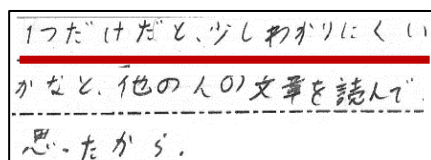 1つだけだと、少しわかりにくい
かなと、他の人の文章を読んで
思ったから。